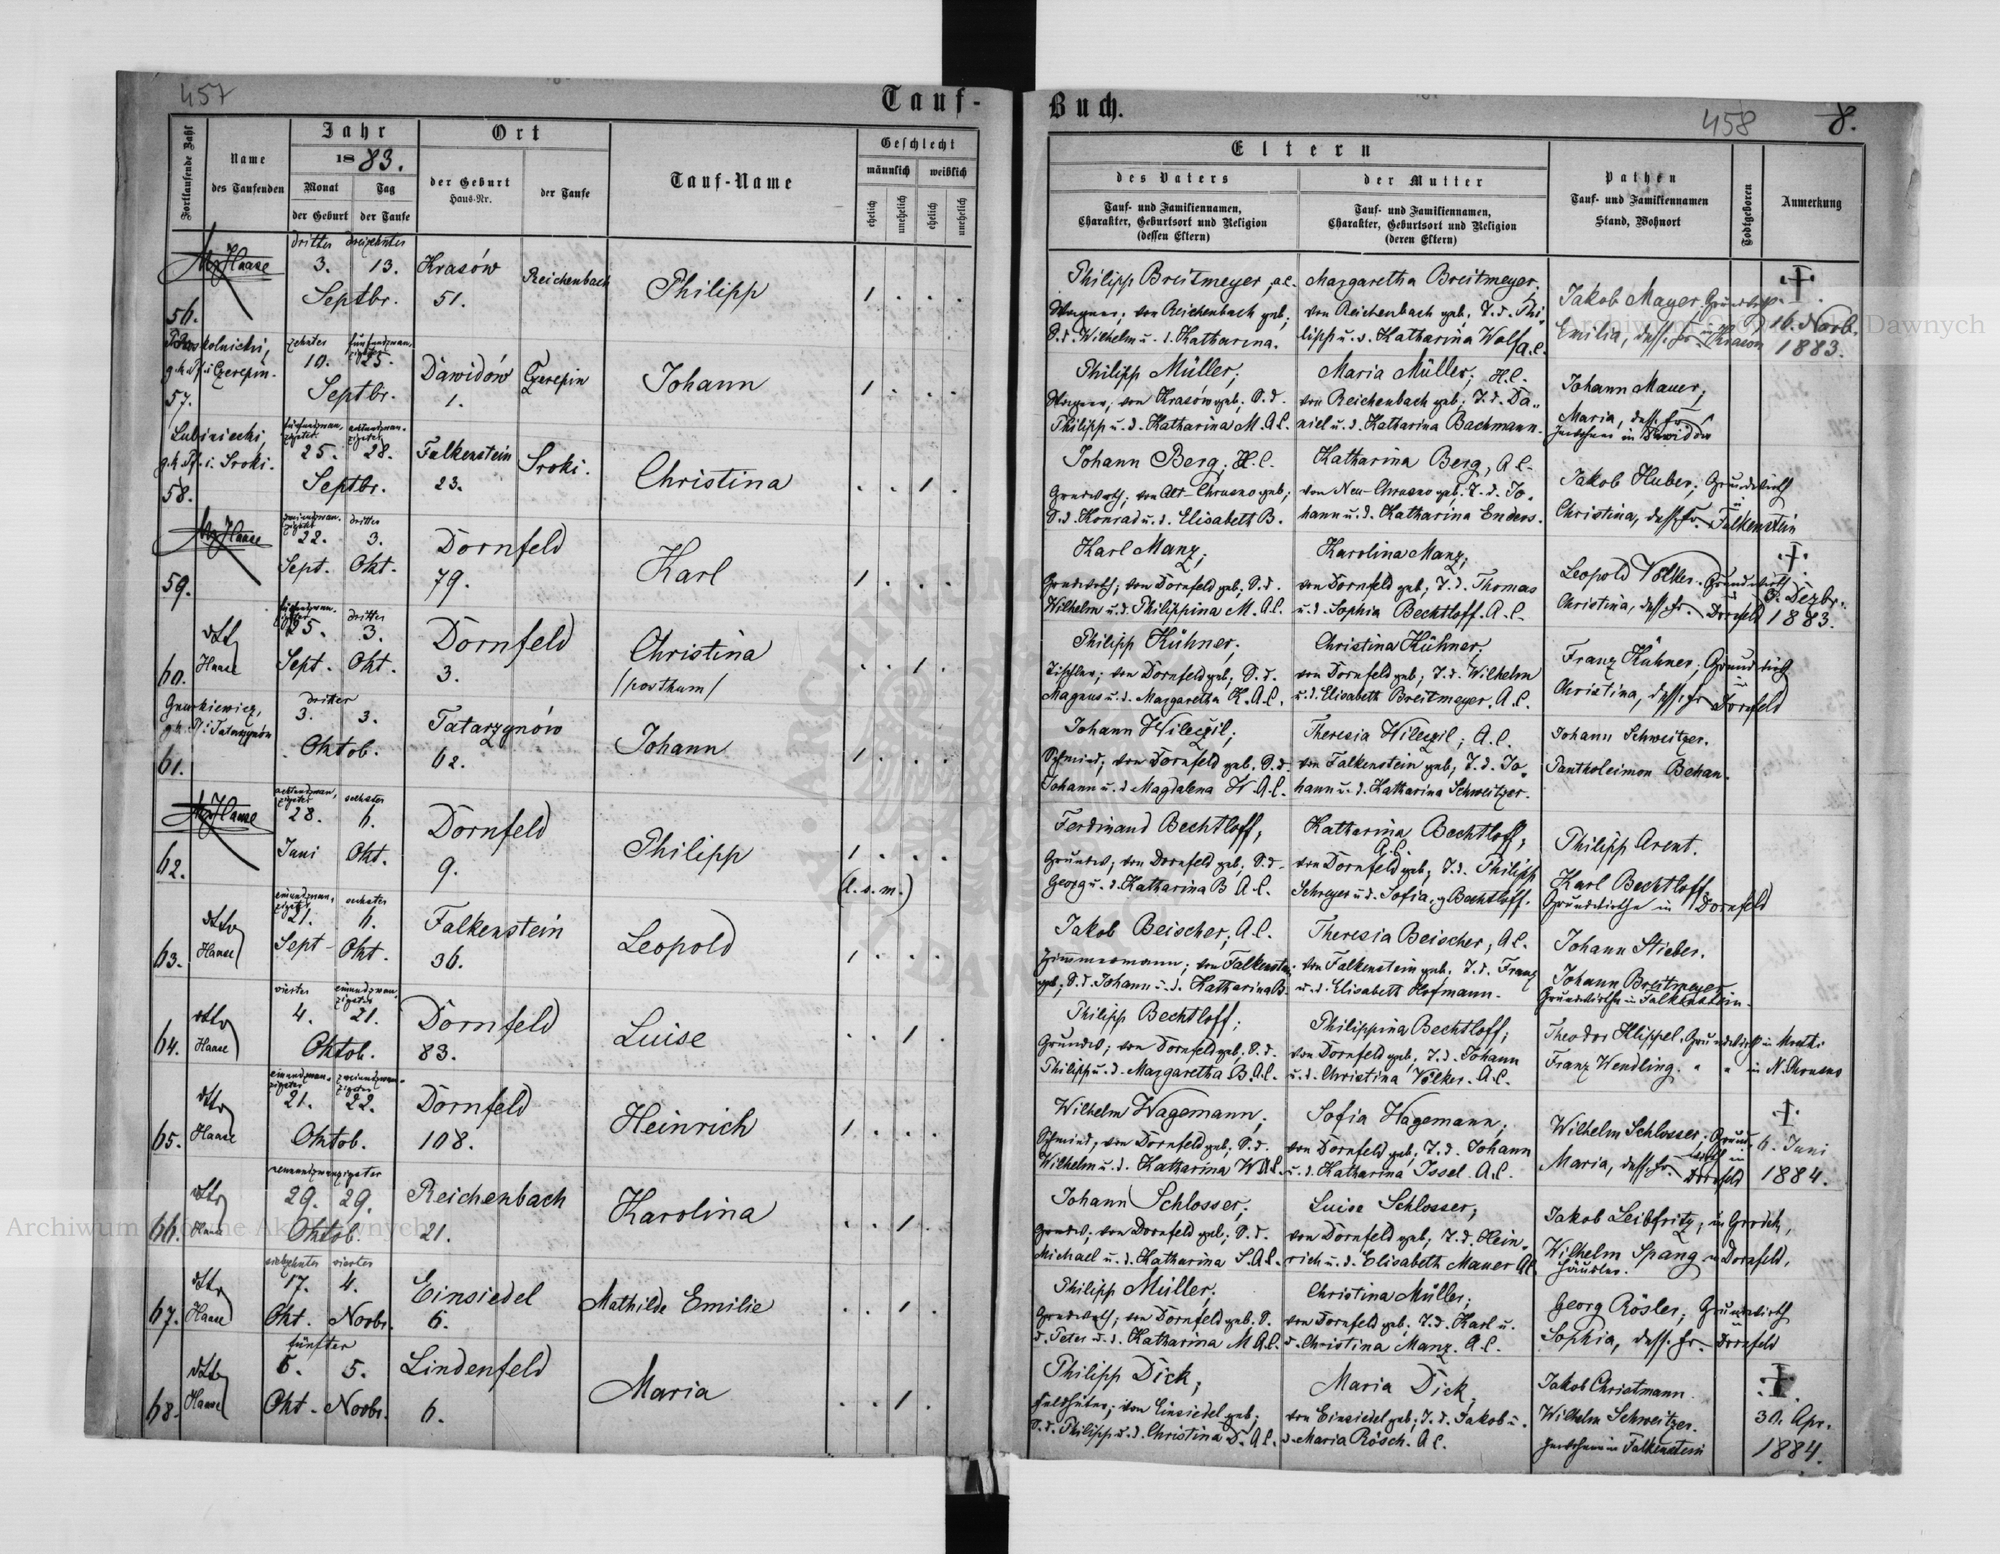 457
Tauf-
Fortlaufende Zahl
Name
des Taufenden
Jahr
1883.
Monat
Tag
der Geburt
der Taufe
Ort
der Geburt
Haus-Nr.
der Taufe
Tauf-Name
Geschlecht
männlich
weiblich
ehelich
unehelich
ehelich
unehelich
Haase
56.
dritter dreizehnter
3. 13.
Septbr.
Krasów
51.
Reichenbach
Philipp
1 . . .
g.k.Pf. i Czerepin.
57.
zehnter
10. 25.
Septbr.
Dawidów
1.
Czerepin
Johann
1 . . .
Lubiniecki,
g.k.Pf. i. Sroki.
58.
25. 28.
Septbr.
Falkenstein
23.
Sroki.
Christina
. . 1 .
Haase
59.
dritter
22. 3.
Sept. Okt.
Dornfeld
79.
Karl
1 . . .
dtto
Haase
60.
dritter
25. 3.
Sept. Okt.
Dornfeld
3.
Christina
/posthum/
. . 1 .
g.k.Pf. i Tatarzynów
61.
dritter
3. 3.
Oktob.
Tatarzynów
62.
Johann
1 . . .
Haase
62.
sechster
28. 6.
Juni Okt.
Dornfeld
9.
Philipp
1 . . .
(l. s. m.)
dtto
Haase
63.
sechster
21. 6.
Sept. Okt.
Falkenstein
36.
Leopold
1 . . .
dtto
Haase
64.
vierter
4. 21.
Oktob.
Dornfeld
83.
Luise
. . 1 .
dtto
Haase
65.
21. 22.
Oktob.
Dornfeld
108.
Heinrich
1 . . .
dtto
Haase
66.
neunundzwanzigster
29. 29.
Oktob.
Reichenbach
21.
Karolina
. . 1 .
dtto
Haase
67.
siebzehnter vierter
17. 4.
Okt. Novbr.
Einsiedel
6.
Mathilde Emilie
. . 1 .
dtto
Haase
68.
fünfter
5. 5.
Okt. Novbr.
Lindenfeld
6.
Maria
. . 1 .
Buch.
458
8.
Eltern
des Vaters
Tauf- und Familiennamen,
Charakter, Geburtsort und Religion
(dessen Eltern)
der Mutter
Tauf- und Familiennamen,
Charakter, Geburtsort und Religion
(deren Eltern)
Pathen
Tauf- und Familiennamen
Stand, Wohnort
Todtgeboren
Anmerkung
Philipp Breitmeyer, a.C.
von Reichenbach geb;
S.d. Wilhelm u. d. Katharina.
Margaretha Breitmeyer,
von Reichenbach geb. T. d. Phi-
lipp u. d. Katharina Wolf a.C.
Jakob Mayer,
Emilia, dess. Fr.
16. Novb.
1883.
Philipp Müller;
von Krasów geb; S. d.
Philipp u. d. Katharina M. A.C.
Maria Müller; H.C.
von Reichenbach geb; T. d. Da-
niel u. d. Katharina Bachmann.
Johann Mauer;
Maria, dess. Fr.
in Dawidów
Johann Berg, H.C.
Grundwirth; von Alt-Chrusno geb;
S. d. Konrad u. d. Elisabeth B.
Katharina Berg, A.C.
von Neu-Chrusno geb. T. d. Jo-
hann u. d. Katharina Enders.
Jakob Huber; Grundwirth
Christina, dess. Fr. in Falkenstein
Karl Manz;
Grundwirth; von Dornfeld geb; S. d.
Wilhelm u. d. Philippina M. A.C.
Karolina Manz;
von Dornfeld geb; T. d. Thomas
u. d. Sophia Bechtloff. A.C.
Leopold Völker. Grundwirth
Christina, dess. Fr. Dornfeld
Dezbr.
1883.
Philipp Kühner;
Tischler; von Dornfeld geb; S. d.
Magnus u. d. Margaretha K. A.C.
Christina Kühner,
von Dornfeld geb; T. d. Wilhelm
u. d. Elisabeth Breitmeyer. A.C.
Franz Kühner; Grundwirth
Christina, dess. Fr. in Dornfeld
Johann Wilczil;
Schmied; von Dornfeld geb. S. d.
Johann u. d. Magdalena W. A.C.
Theresia Wilczil; A.C.
von Falkenstein geb; T. d. Jo-
hann u. d. Katharina Schweitzer.
Johann Schweitzer.
Pantholeimon Behan.
Ferdinand Bechtloff;
Grundw; von Dornfeld geb; S. d.
Georg u. d. Katharina B. A.C.
Katharina Bechtloff;
A.C.
von Dornfeld geb; T. d. Philipp
Schreyer u. d. Sofia, g. Bechtloff.
Philipp Arent.
Karl Bechtloff.
Grundwirthe in Dornfeld
Jakob Beischer; A.C.
Zimmermann; von Falkenstein
geb; S. d. Johann u. d. Katharina B.
Theresia Beischer, A.C.
von Falkenstein geb. T. d. Franz
u. d. Elisabeth Hofmann.
Johann Stieber.
Johann Breitmeyer
Grundwirthe in Falkenstein.
Philipp Bechtloff;
Grundw; von Dornfeld geb; S. d.
Philipp u. d. Margaretha B. A.C.
Philippina Bechtloff;
von Dornfeld geb, T. d. Johann
u. d. Christina Völker. A.C.
Theodor Klippel, Grundwirth in
Franz Wendling. " " in N. Chrusno
Wilhelm Wagemann;
Schmied; von Dornfeld geb; S. d.
Wilhelm u. d. Katharina W. A.C.
Sofia Wagemann;
von Dornfeld geb; T. d. Johann
u. d. Katharina Issel. A.C.
Wilhelm Schlosser; Grund-
wirth in
Maria, dess. Fr. Dornfeld
6. Juni
1884.
Johann Schlosser;
Grundw; von Dornfeld geb; S. d.
Michael u. d. Katharina S. A.C.
Luise Schlosser;
von Dornfeld geb; T. d. Hein-
rich u. d. Elisabeth Mauer A.C.
Jakob Leibfritz, in Grodek,
Wilhelm Spang in Dornfeld,
Häusler.
Philipp Müller;
Grundwirth; von Dornfeld geb. S.
d. Peter u. d. Katharina M. A.C.
Christina Müller;
von Dornfeld geb. T. d. Karl u.
d. Christina Manz. A.C.
Georg Rösler; Grundwirth
Sophia, dess. Fr. in Dornfeld
Philipp Dick;
von Einsiedel geb;
S. d. Philipp u. d. Christina D. A.C.
Maria Dick,
von Einsiedel geb; T. d. Jakob u.
d. Maria Rösch. A.C.
Jakob Christmann.
Wilhelm Schweitzer.
in Falkenstein
30. Apr.
1884.
Archiwum Główne Akt Dawnych
Archiwum Główne Akt Dawnych